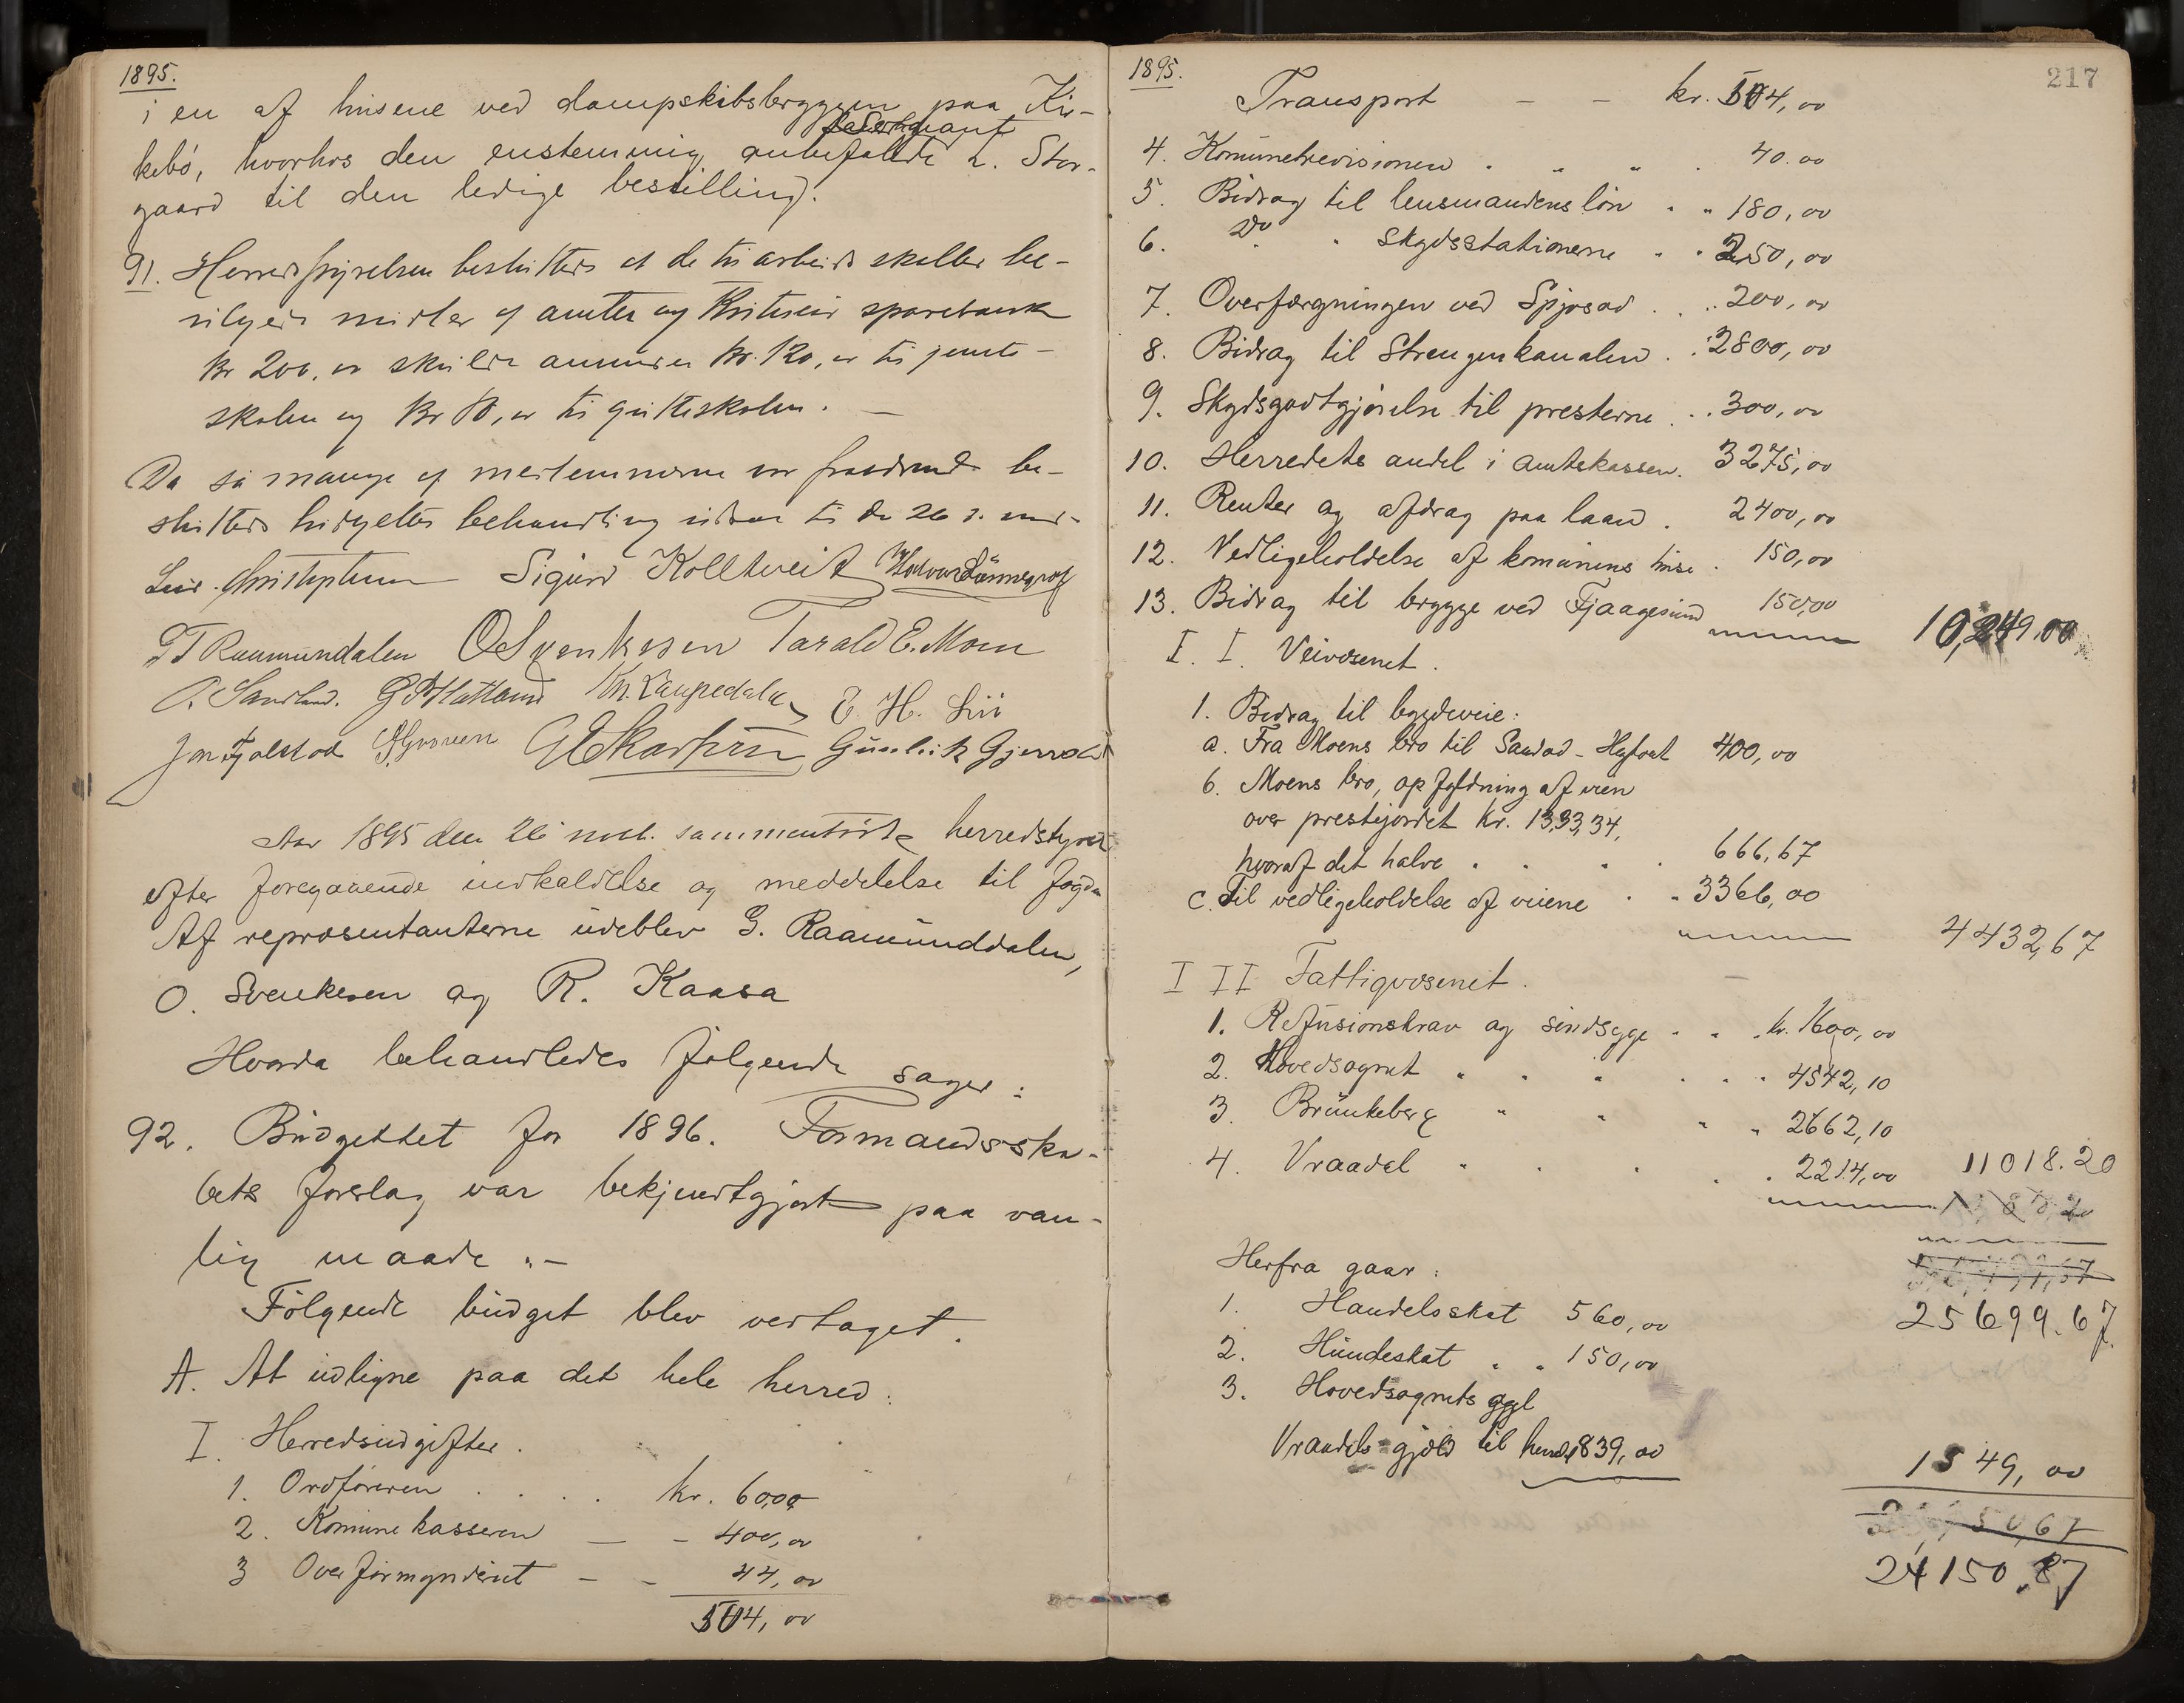 1895.
i en af husene ved dampskibsbryggen paa Kir-
kebö, hvorhos den enstemmig anbefalede L. Stor-
gaard til den ledige bestilling.
91. Herredsstyrelsen besluttede at de til arbeids skoller be-
vilgede midler af amtet og Kviteseid sparebank
kr 200,00 skulde anvendes kr. 120,00 til jente-
skolen og kr 80,00 til gutteskolen. —
Da så mange af medlemmerne var fraværende be-
sluttedes budgettets behandling udsat til den 26 d. md.
Sigurd Kolltveit
G T Raamundalen O Svenkesen Tarald E. Moen
O. Sandland. Kn. Laupedalen E. H. Lii
Jon Fjalestad Gunleik Gjerrde
Aar 1895 den 26 novb. sammentraadte herredstyret
efter foregaaende indkaldelse og meddelelse til fogden
Af repræsentanterne udeblev G. Raamunddalen,
O. Svenkesen og R. Kaasa
Hvorda behandledes følgende sager:
92. Budgettet for 1896. Formandsska-
bets forslag var bekjendtgjort paa van-
lig maade.—
Følgende budget blev vedtaget.
A. At udligne paa det hele herred:
I Herredsudgifter.
1. Ordføreren . . . . kr. 60,00
2. Komunekasseren — - 400,00
3 Overformynderiet — - 44,00
504,00
1895.
217
Transport — — kr. 504,00
4. Komunerevisionen . „ „ . 40.00
5. Bidrag til lensmandens løn . „ 180,00
6. Do . Skydsstationerne . . 250,00
7. Overfærgningen ved Spjosod . . . 200,00
8. Bidrag til Strengenkanalen . . 2800,00
9. Skydsgodtgjörelse til presterne . . 300,00
10. Herredets andel i amtskassen. 3275,00
11. Renter og afdrag paa laan . 2400,00
12. Vedligeholdelse af komunens huse . 150,00
13. Bidrag til brygge ved Fjaagesund 150,00
10,249,00
II. Veivæsenet.
1. Bidrag til bygdeveie:
a. Fra Moens bro til Sandod - 400,00
b. Moens bro, opfyldning af veien
over prestejordet kr. 1333,34,
hvoraf det halve . . . . 666,67
c. Til vedligeholdelse af veiene . „ 3366,00
4432,67
III Fattigvæsenet.
1. Refusionskrav og sindsyge . „ . kr. 1600,00
2. Hovedsognet „ . „ . . . 4542,10
3. Brunkeberg „ „ „ „ 2662,10
4. Vraadal „ . . . . 2214,00
11018.20
Herfra gaar:
25699.67
1. Handelsskat 560,00
2. Hundeskat . „ 150,00
3. Hovedsognets og
Vraadals gjæld til 839,00
1549,00
24150,67